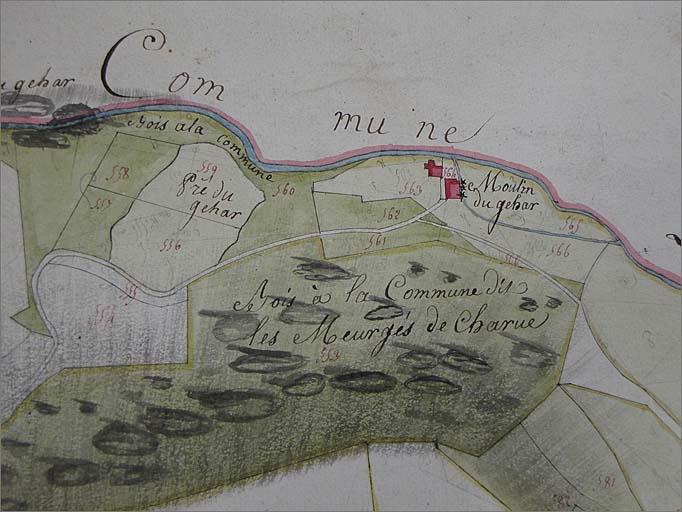 Com
mu ne
u gehar
Bois a la commune
558
559
Pré du
gehar
560
563
564
Moulin
du gehar
557
556
562
561
565
566
555
554
Bois à la Commune dit
les Meurgés de Charue
553
581
582